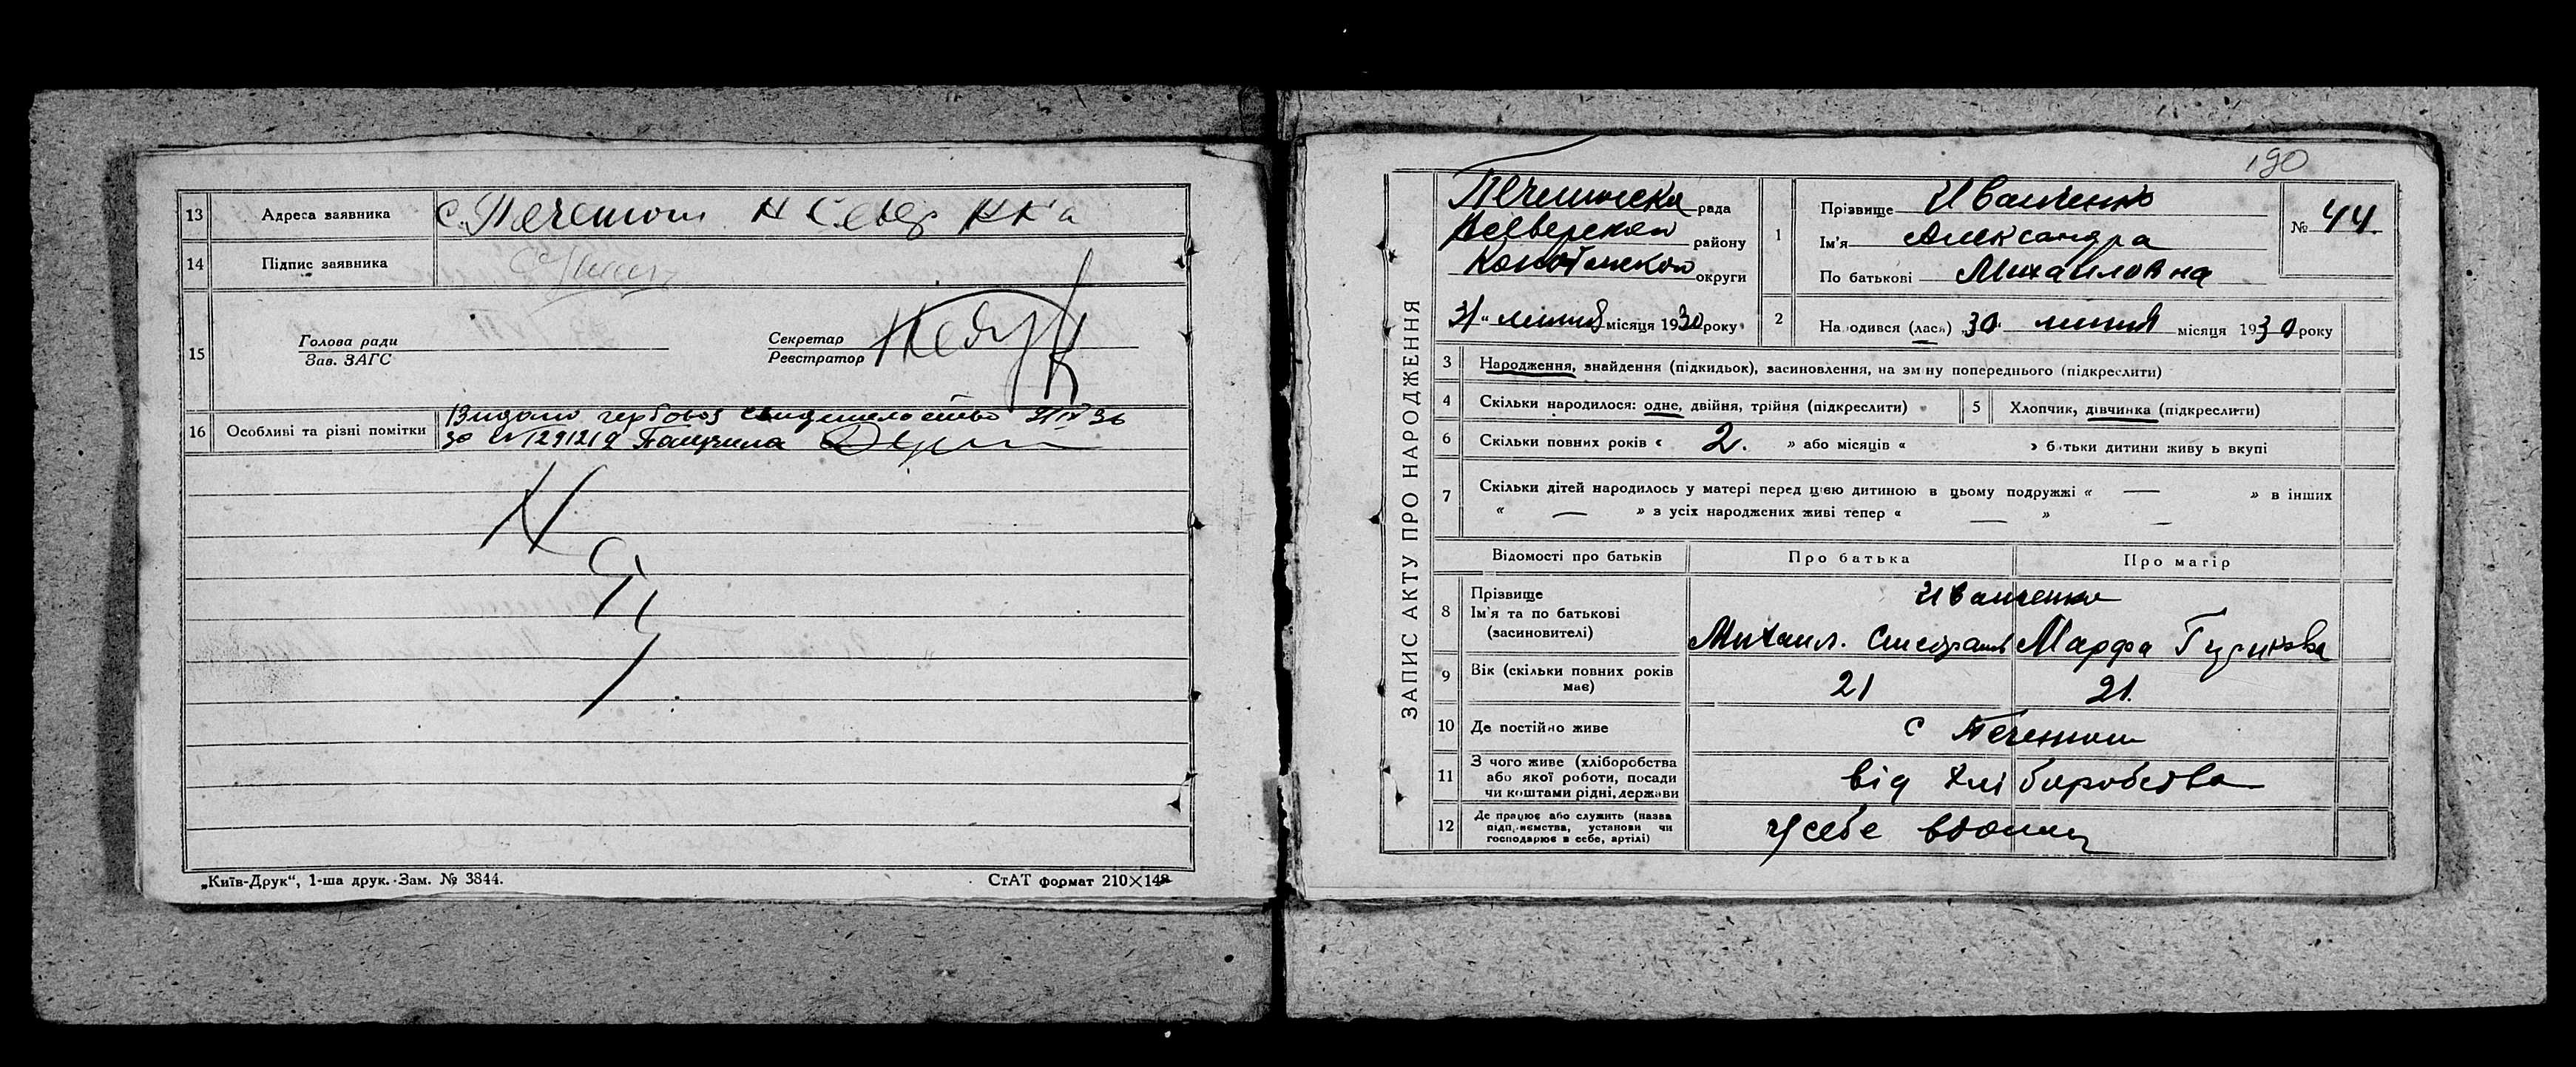 13 Адреса заявника с. Печенюги Н Север
14 Підпис заявника
15 Голова ради
Зав. ЗАГС
Секретар
Реєстратор
16 Особливі та різні помітки
Видано гербовоз свидительство 31/IV 36
за № 1291219 Получила
„Київ-Друк“, 1-ша друк. Зам. № 3844.
СтАТ формат 210×148
190
ЗАПИС АКТУ ПРО НАРОДЖЕННЯ
Печенюгска рада
району
Конотопской округи
31 „ липня місяця 1930 року
1 Прізвище Иванченко
Ім'я Александра
По батькові Михаиловна
№ 44
2 На одився (лась) 30 „ липня місяця 1930 року
3 Народження, знайдення (підкидьок), васиновлення, на зміну попереднього (підкреслити)
4 Скільки народилося: одне, двійня, трійня (підкреслити)
5 Хлопчик, дівчинка (підкреслити)
6 Скільки повних років « 2. » або місяців « » батьки дитини живуть вкупі
7 Скільки дітей народилось у матері перед цією дитиною в цьому подружжі « — » в інших
« — » з усіх народжених живі тепер « — » —
Відомості про батьків Про батька Про матір
8 Прізвище
Ім'я та по батькові
(засиновителі)
Иванченко
Михаил. Марфа
9 Вік (скільки повних років
має)
21 21.
10 Де постійно живе с Печенюги
11 З чого живе (хліборобства
або якої роботи, посади
чи коштами рідні, держави
від хліборобства
12 Де працює або служить (назва
підприємства, установи чи
господарює в себе, артілі)
у себе вдома